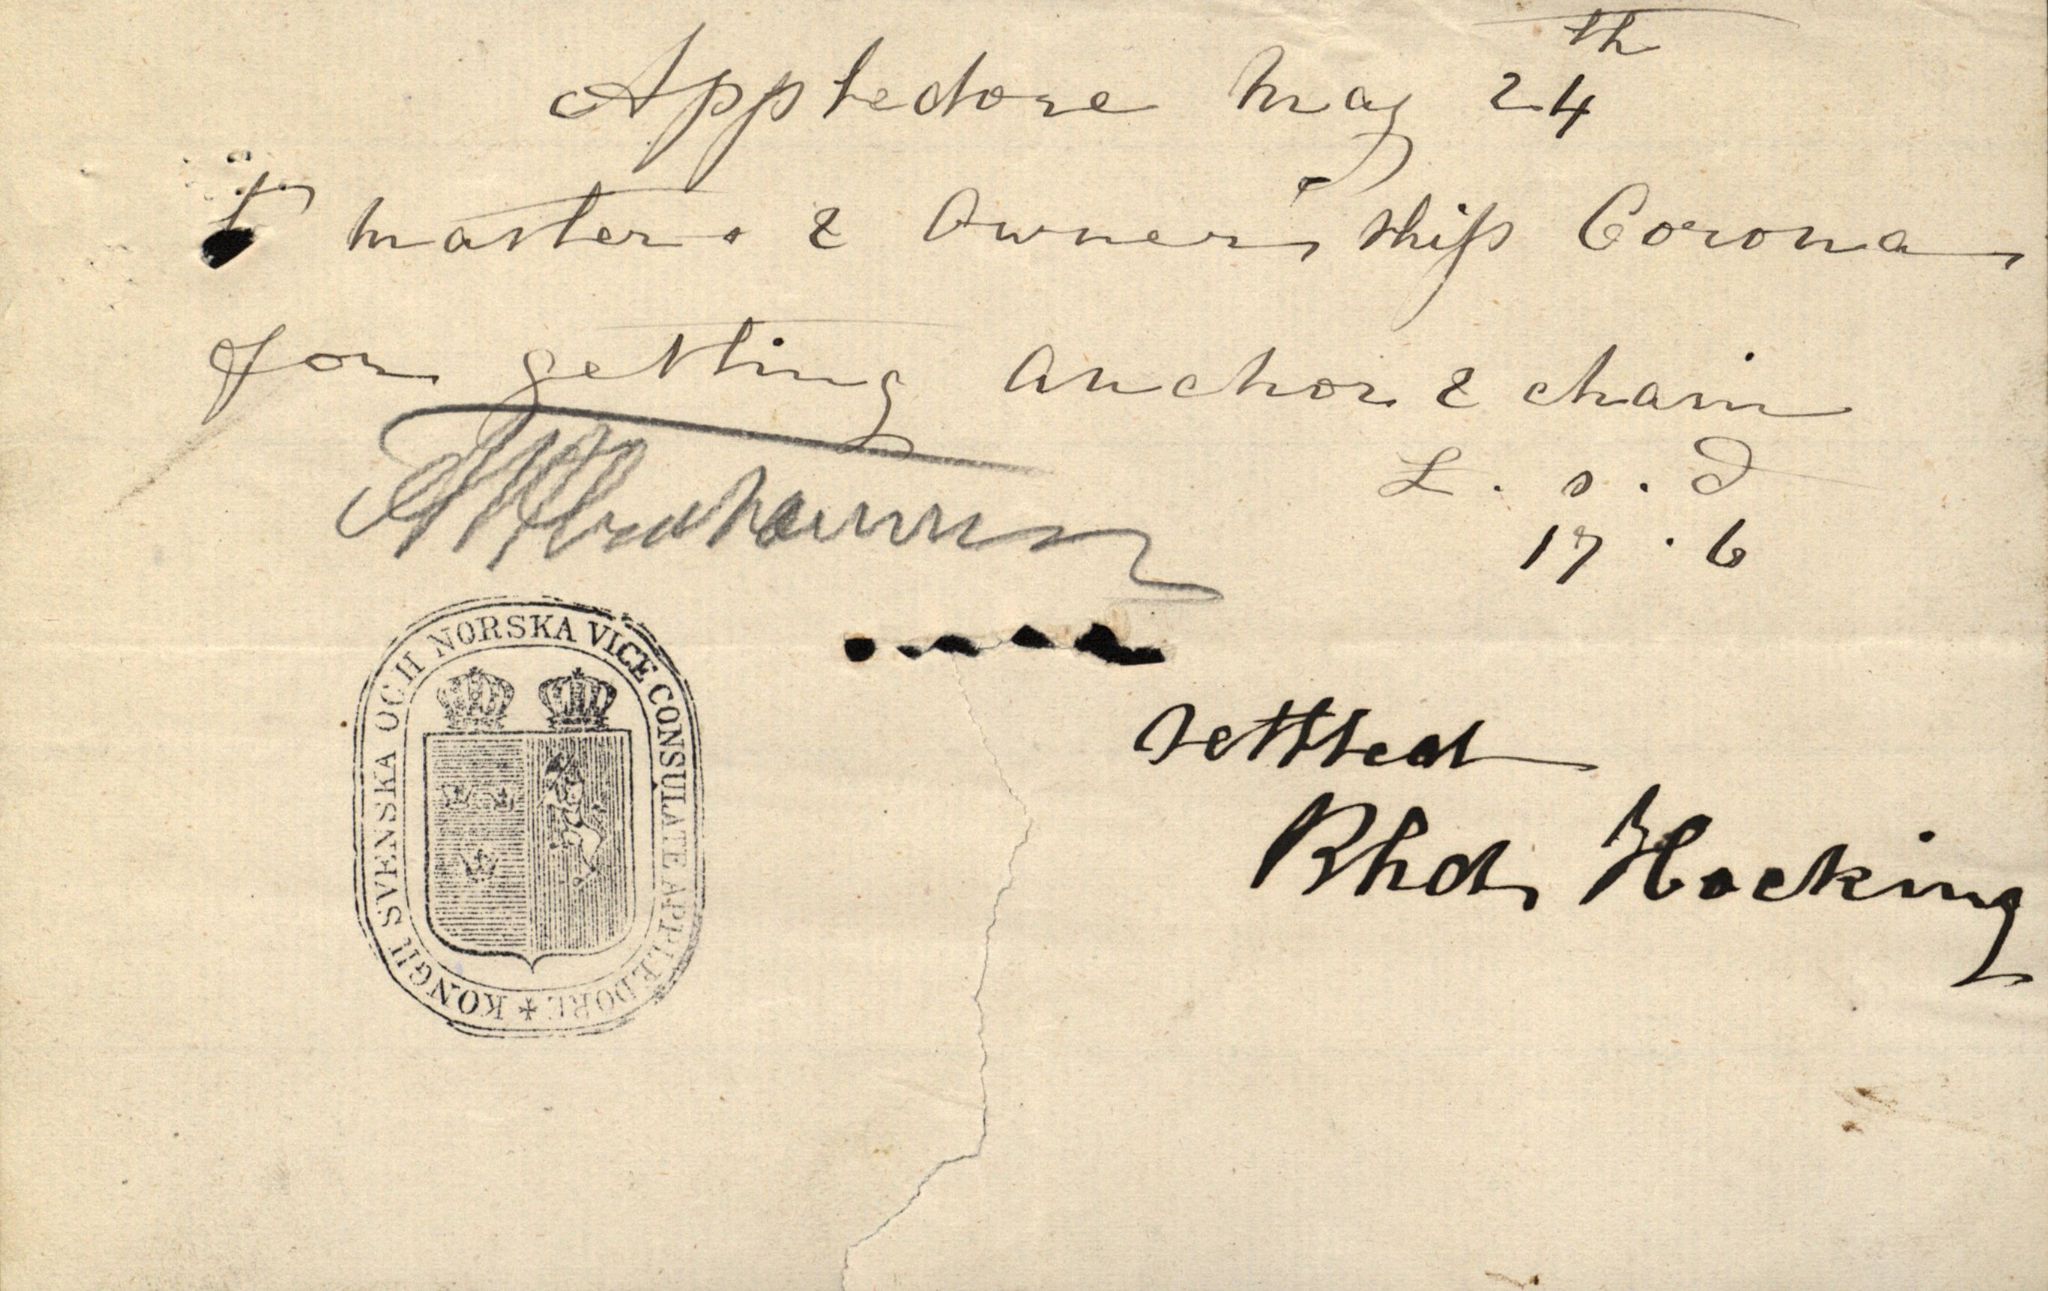 Appledore May 24th
To master & Owners ship Corona
for getting Anchor & chain
L . s . d
17 . 6
settled
Rhd. Hocking
KONGL SVENSKA OCH NORSKA VICE CONSULATE APPLEDORE